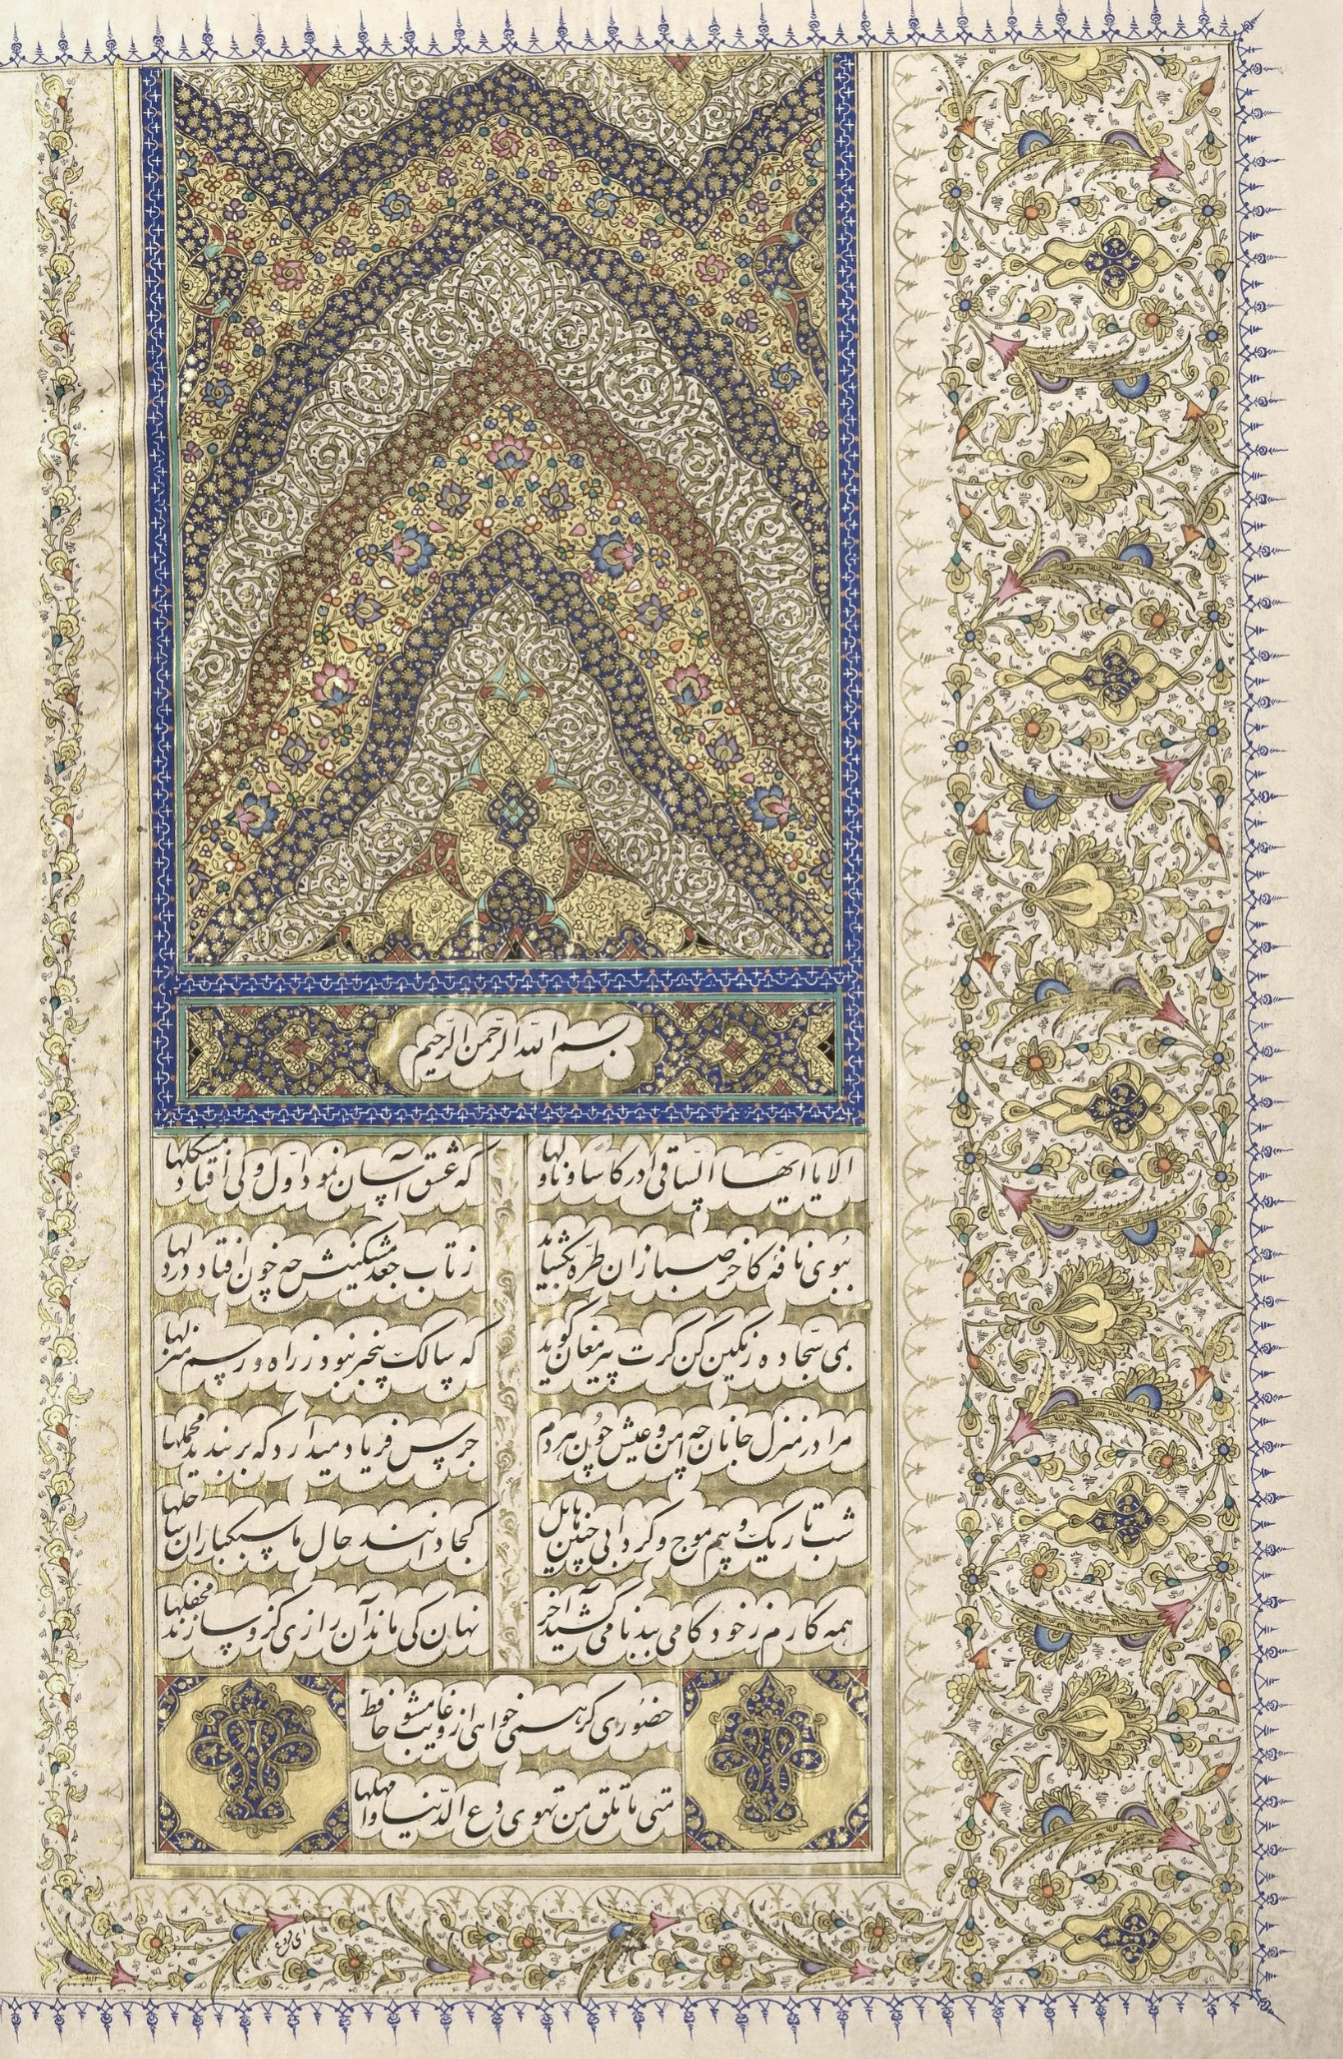 بسم الله الرحمن الرحیم
الا یا ایها الساقی ادر کاسا و ناولها
که عشق آسان نمود اول ولی افتاد مشکلها
ببوی نافه کاخر صبا زان طره بگشاید
ز تاب جعد مشکینش چه خون افتاد در دلها
بمی سجاده رنگین کن گرت پیر مغان گوید
که سالک بیخبر نبود ز راه و رسم منزلها
مرا در منزل جانان چه امن و عیش چون هردم
جرس فریاد میدارد که بر بندید محملها
شب تاریک و بیم موج و گردابی چنین هایل
کجا دانند حال ما سبکباران ساحلها
همه کارم ز خود کامی ببدنامی کشید آخر
نهان کی ماند آن رازی کزو سازند محفلها
حضوری گر همی خواهی ازو غایب مشو حافظ
متی ما تلق من تهوی دع الدنیا و اهملها